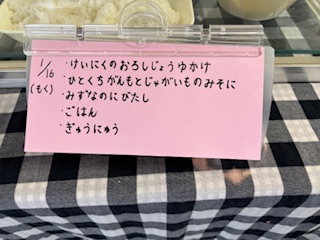 1/16
(もく)
・けいにくのおろしじょうゆかけ
・ひとくちがんもとじゃがいものみそに
・みずなのにびたし
・ごはん
・ぎゅうにゅう